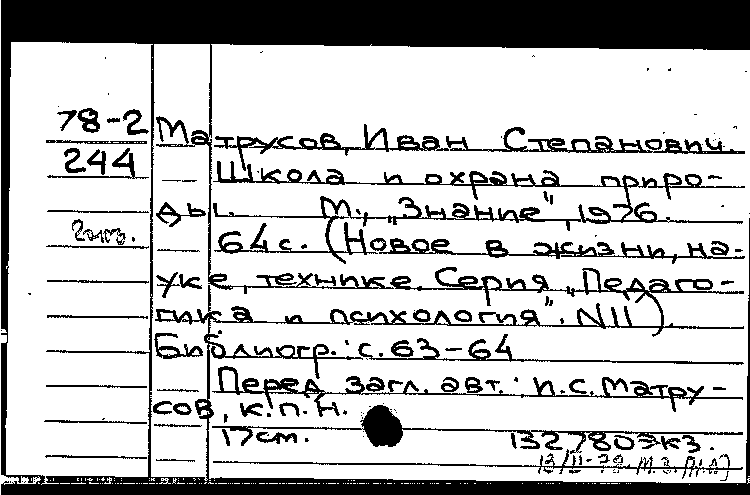 78-2
244
2 экз.
Матрусов, Иван Степанович.
Школа и охрана приро-
ды. М., „Знание", 1976.
64 с. (Новое в жизни, на-
уке, технике. Серия „Педаго-
гика и психология". N11).
Библиогр.: с. 63-64
Перед загл. авт.: И.С. Матру-
сов, к.п.н.
17 см. 132780экз.